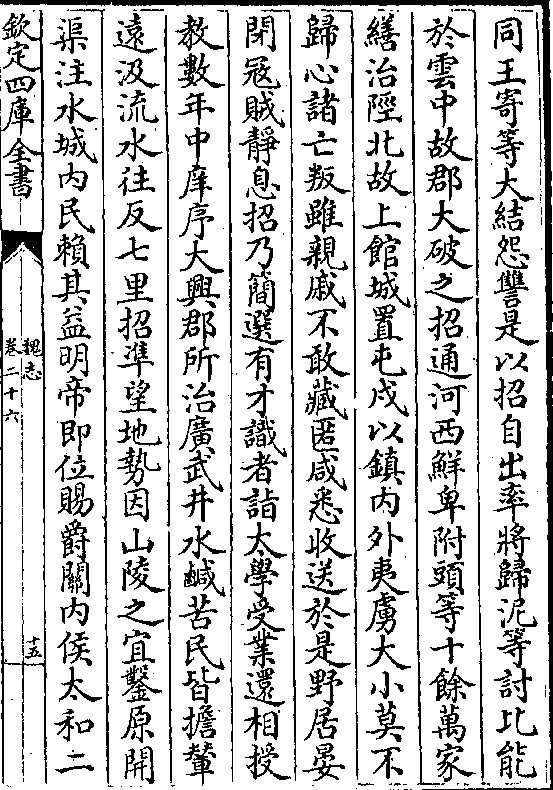 同王寄等大結怨讐是以招自出率將歸泥等討比能
於雲中故郡大破之招通河西鮮卑附頭等十餘萬家
繕治陘北故上館城置屯戍以鎮内外夷虜大小莫不
歸心諸亡叛雖親戚不敢藏匿咸悉收送於是野居晏
閉冦賊静息招乃簡選有才識者詣太學受業還相授
教數年中庠序大興郡所治廣武井水鹹苦民皆擔輦
遠汲流水往反七里招準望地勢因山陵之宜鑿原開
渠注水城内民賴其益明帝即位賜爵關内侯太和二
欽定四庫全書
魏志
卷二十六
十五